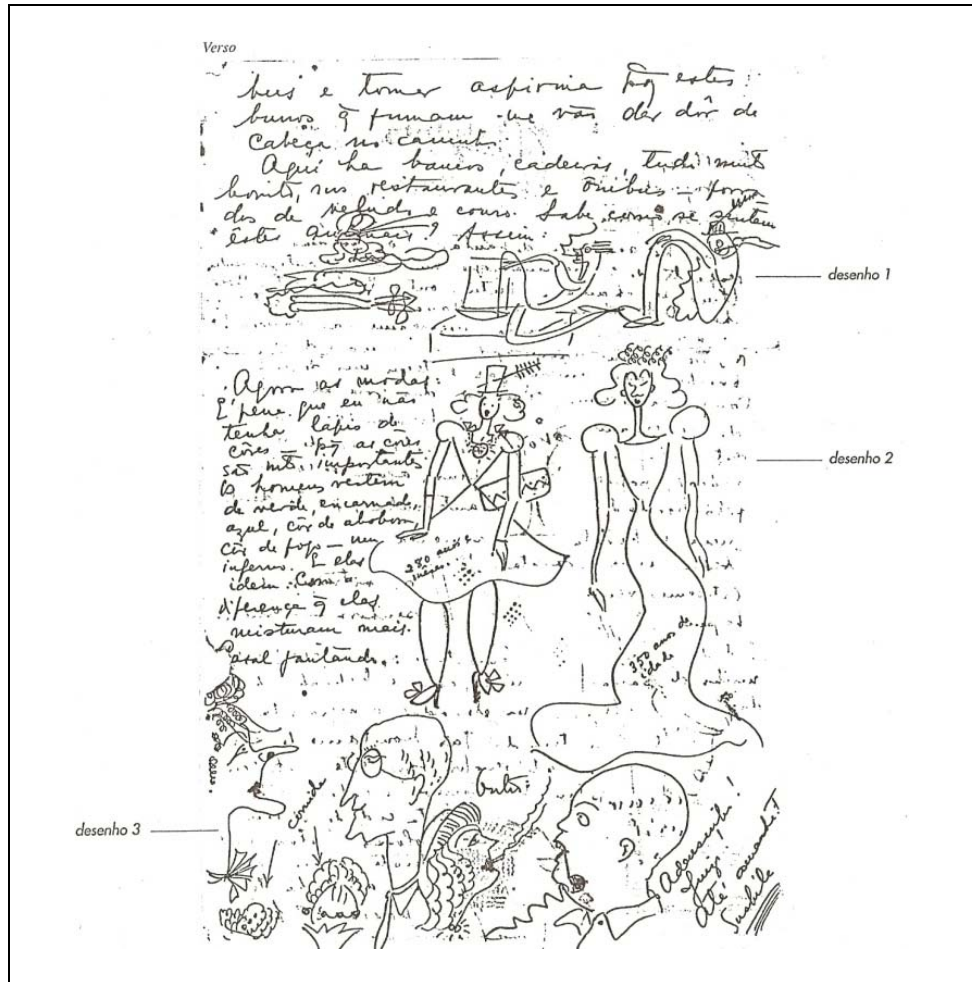 Verso
bus e tomar aspirina pq estes
burros q̃ fumam me vão dar dôr de
cabeça no caminho.
Aqui ha bancos, cadeiras, tudo muito
bonito, nos restaurantes e ônibus — forra
dos de veludo e couro. Sabe como se sentam
estes animais? Assim:
desenho 1
Agora as modas.
É pena que eu não
tenha lápis de
côres pq as côres
são mto. importantes
Os homens vestem
de verde, encarnado,
azul, côr de abobora
côr de fogo — um
inferno. E elas
idem. Com a
diferença q̃ elas
misturam mais.
Casal jantando.
280 anos e
mêses.
350 anos de
idade
desenho 2
desenho 3
comida
Outro
Adeusinho!
Luiz
Até amanhã